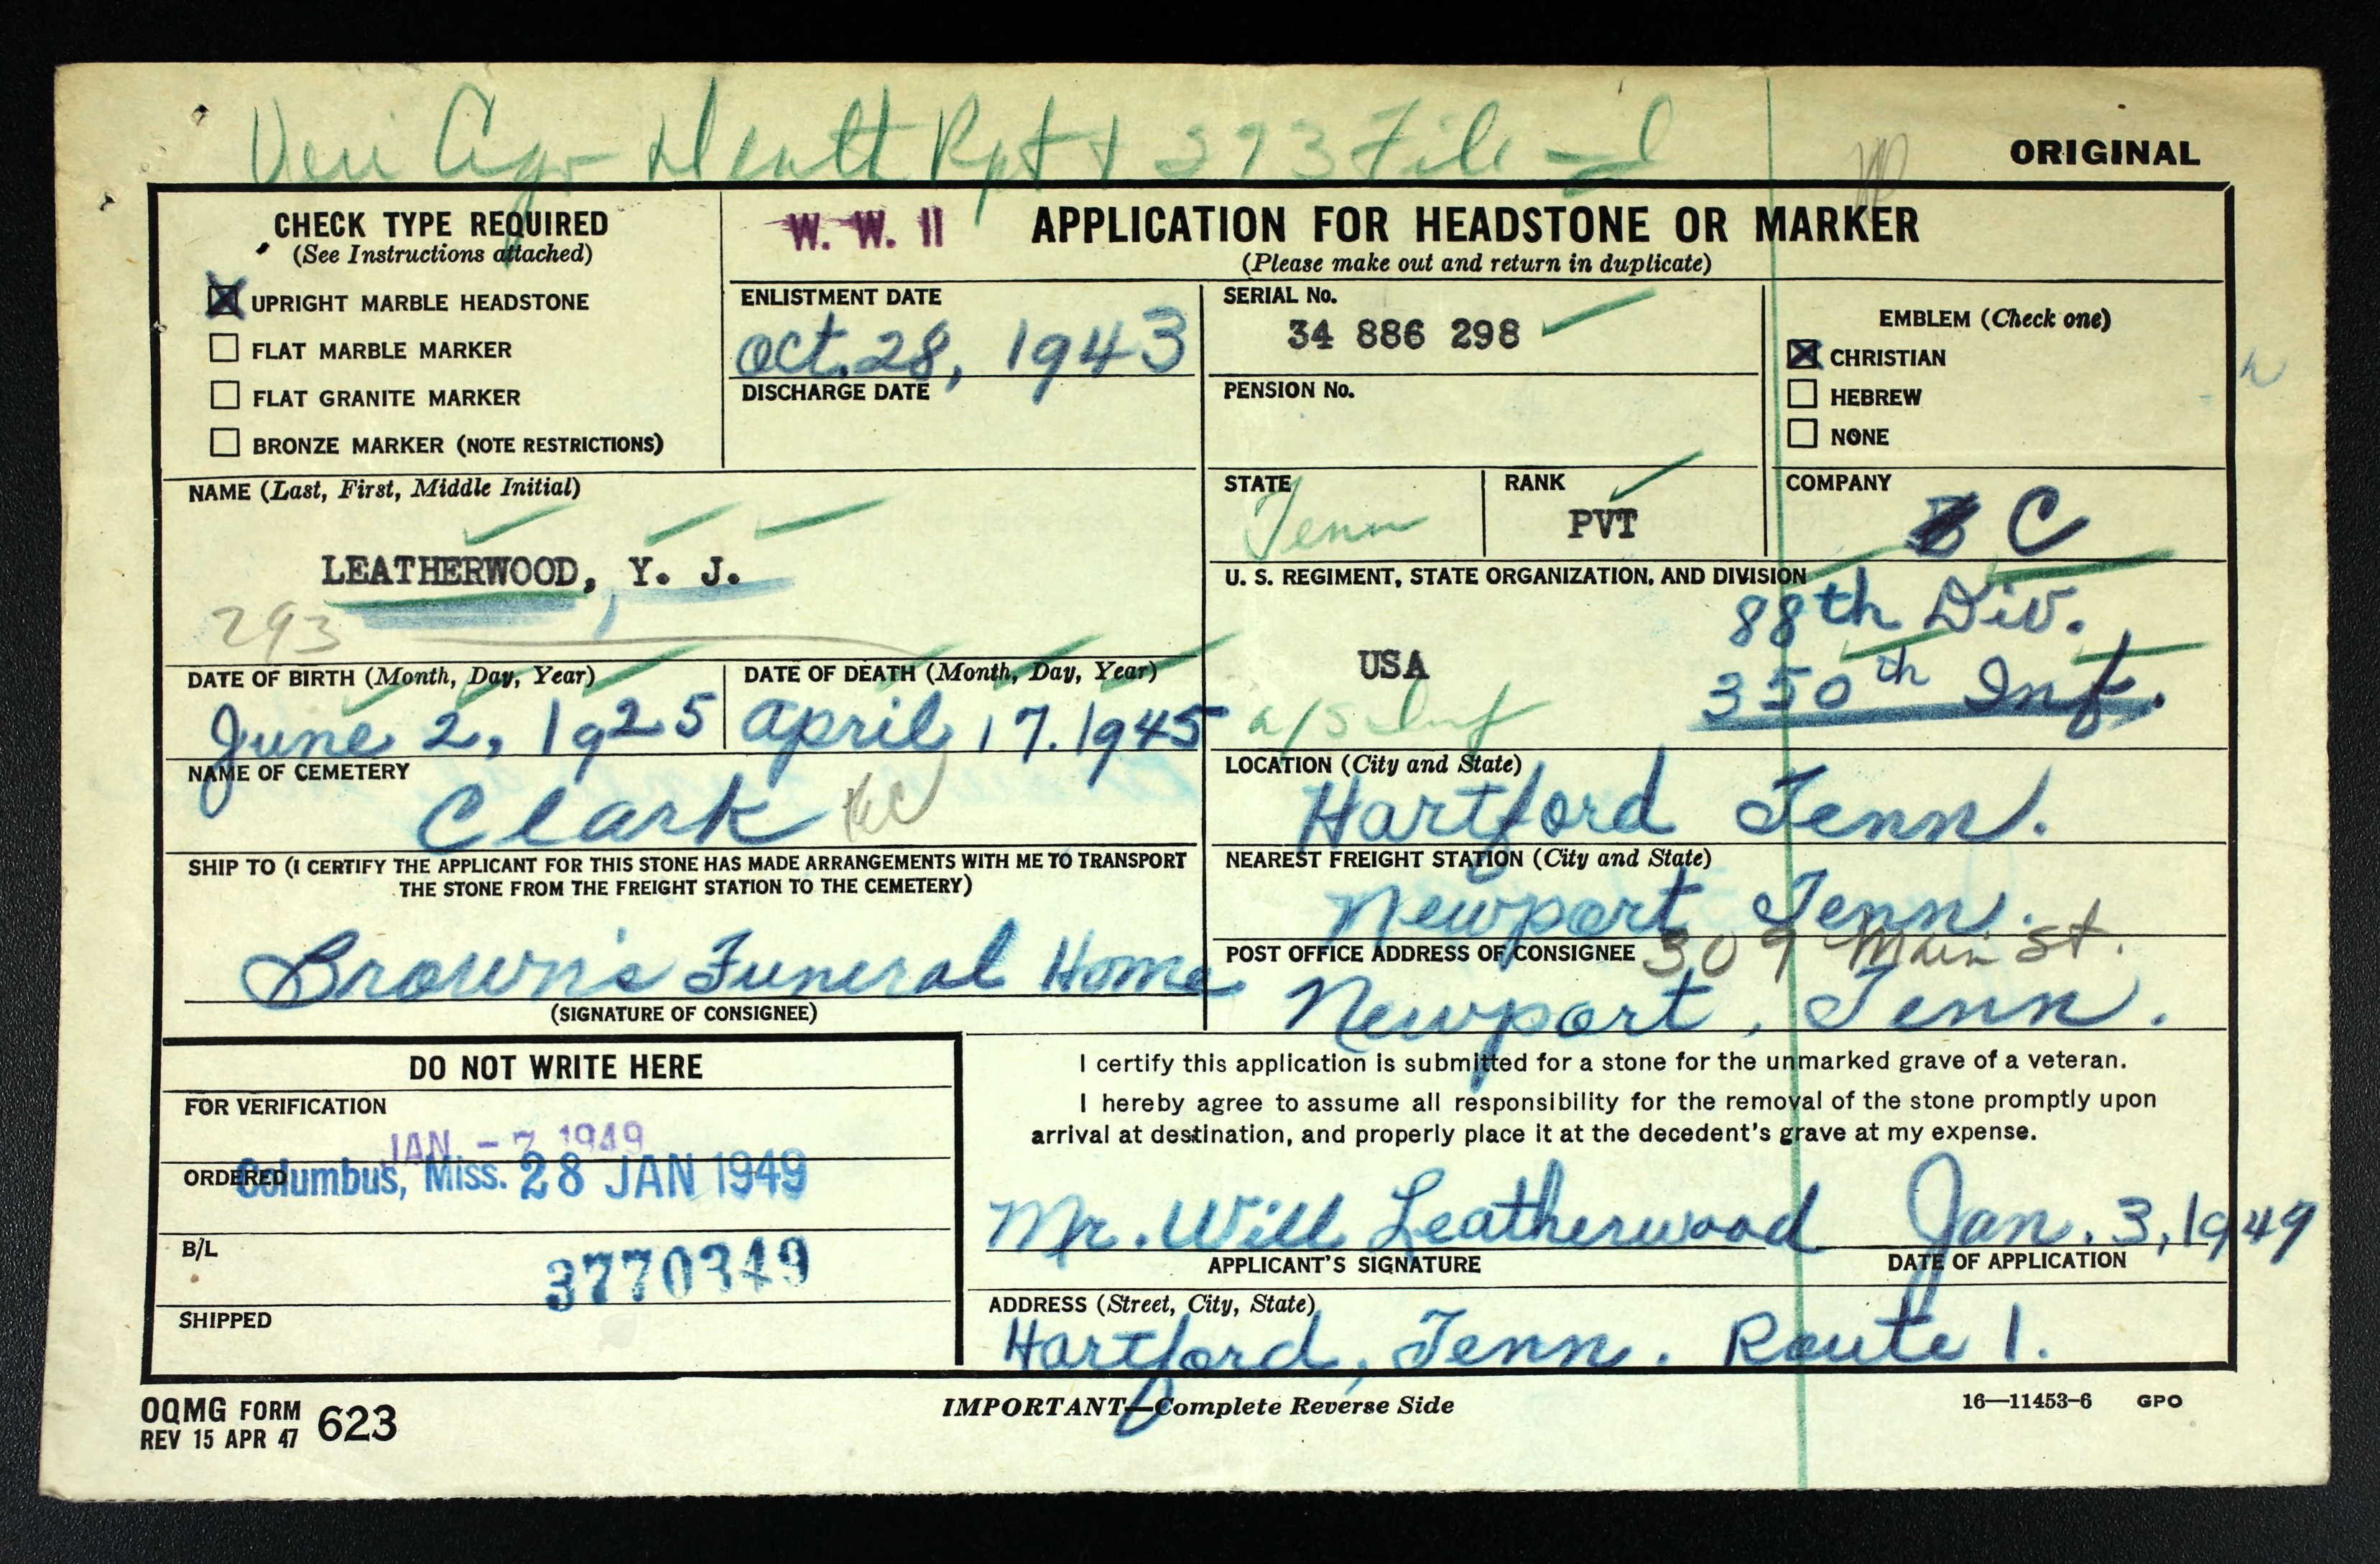 Death Rpt + 293 File
ORIGINAL
CHECK TYPE REQUIRED
(See Instructions attached)
UPRIGHT MARBLE HEADSTONE
FLAT MARBLE MARKER
FLAT GRANITE MARKER
BRONZE MARKER (NOTE RESTRICTIONS)
W. W. II
APPLICATION FOR HEADSTONE OR MARKER
(Please make out and return in duplicate)
ENLISTMENT DATE
Oct. 28, 1943
DISCHARGE DATE
SERIAL No.
34 886 298
PENSION No.
EMBLEM (Check one)
CHRISTIAN
HEBREW
NONE
NAME (Last, First, Middle Initial)
LEATHERWOOD, Y. J.
293
STATE
Tenn
RANK
PVT
COMPANY
C
U. S. REGIMENT, STATE ORGANIZATION, AND DIVISION
88th Div.
USA
350th Inf.
DATE OF BIRTH (Month, Day, Year)
June 2, 1925
DATE OF DEATH (Month, Day, Year)
April 17. 1945
NAME OF CEMETERY
Clark
LOCATION (City and State)
Hartford Tenn.
SHIP TO (I CERTIFY THE APPLICANT FOR THIS STONE HAS MADE ARRANGEMENTS WITH ME TO TRANSPORT
THE STONE FROM THE FREIGHT STATION TO THE CEMETERY)
Brown's Funeral Home
(SIGNATURE OF CONSIGNEE)
NEAREST FREIGHT STATION (City and State)
Newport Tenn.
POST OFFICE ADDRESS OF CONSIGNEE 309 Main St.
Newport, Tenn.
DO NOT WRITE HERE
FOR VERIFICATION
JAN - 7 1949
ORDERED
Columbus, Miss. 28 JAN 1949
B/L
3770349
SHIPPED
I certify this application is submitted for a stone for the unmarked grave of a veteran.
I hereby agree to assume all responsibility for the removal of the stone promptly upon
arrival at destination, and properly place it at the decedent's grave at my expense.
Mr. Will Leatherwood Jan. 3, 1949
APPLICANT'S SIGNATURE
DATE OF APPLICATION
ADDRESS (Street, City, State)
Hartford, Tenn. Route 1.
OQMG FORM 623
REV 15 APR 47
IMPORTANT—Complete Reverse Side
16—11453-6 GPO